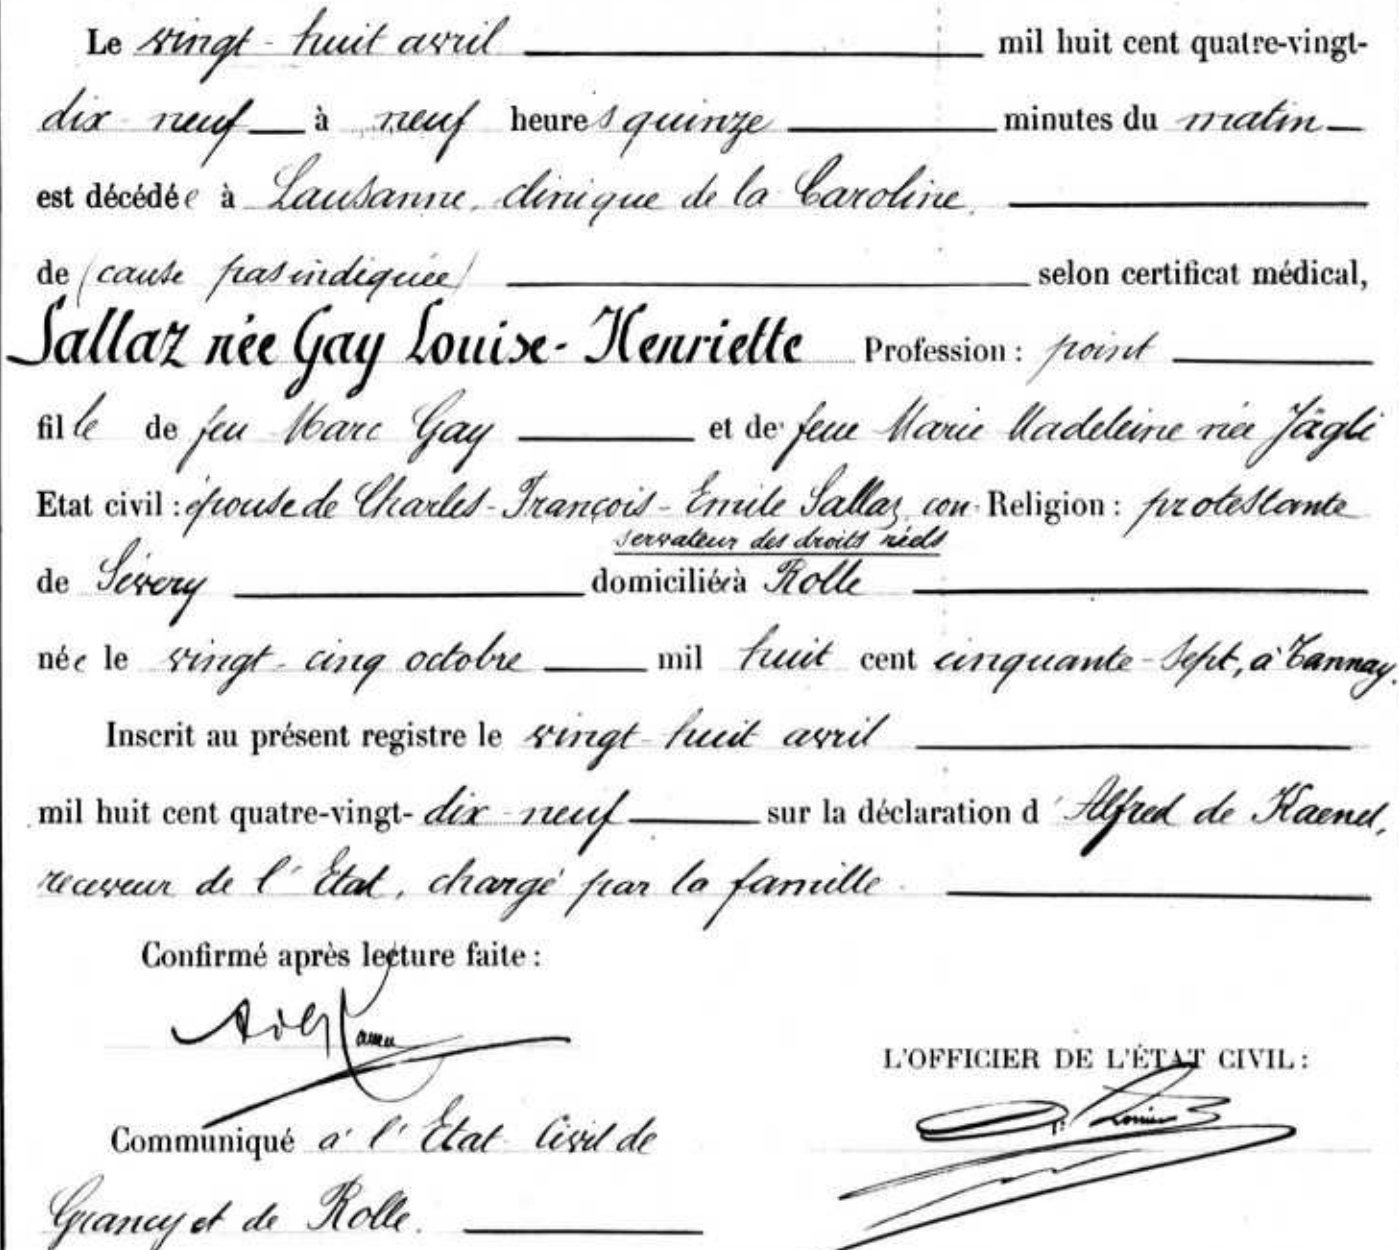 Le vingt-huit avril mil huit cent quatre-vingt-
dix neuf à neuf heures quinze minutes du matin
est décédée à Lausanne, clinique de la Caroline,
de (cause pas indiquée) selon certificat médical,
Sallaz née Gay Louise-Henriette Profession : point
fille de feu Marc Gay et de feue Marie Madeleine née Jägli
Etat civil : épouse de Charles-François-Emile Sallaz, con- Religion : protestante
servateur des droits réels
de Sévery domiciliée à Rolle
née le vingt-cinq octobre mil huit cent cinquante-sept, à Tannay.
Inscrit au présent registre le vingt-huit avril
mil huit cent quatre-vingt-dix neuf sur la déclaration d'Alfred de Kaenel,
receveur de l'Etat, chargé par la famille.
Confirmé après lecture faite :
L'OFFICIER DE L'ÉTAT CIVIL :
Communiqué à l'Etat Civil de
Grancy et de Rolle.